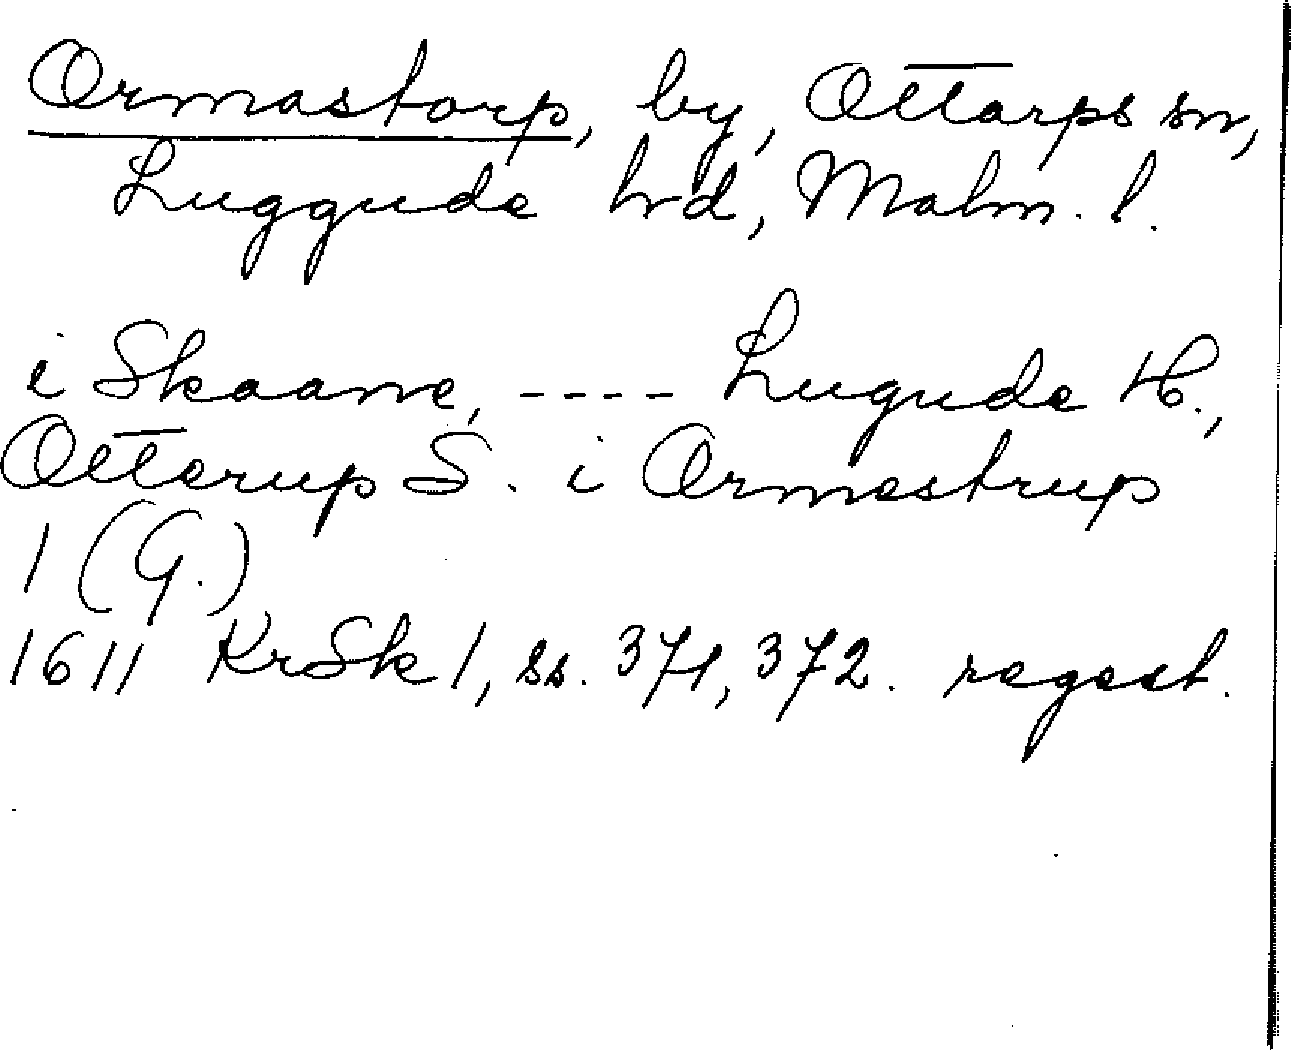 Ormastorp, by, Ottarps sn,
Luggude hrd, Malm. l.
i Skaane, ---- Lugude H.,
Otterup S. i Ormestrup
1 (G.)
1611 KrSk 1, ss. 371, 372. regest.